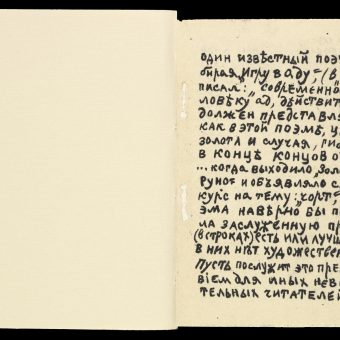 один извѣстный поэт
бирая „Игру в аду“, (в
писал: „современно
ловѣку ад, дѣйствит
должен представля
как в этой поэмѣ, ц
золота и случая, гиб
в концѣ концов о
...когда выходило „Зол
Руно“ и объявляло с
курс на тему: „чорт“,
эма навѣрно бы по
ла заслуженную пр
(в строках) есть или лучш
в них нѣт художествен
Пусть послужит это пре
віем для иных нев
тельных читателей